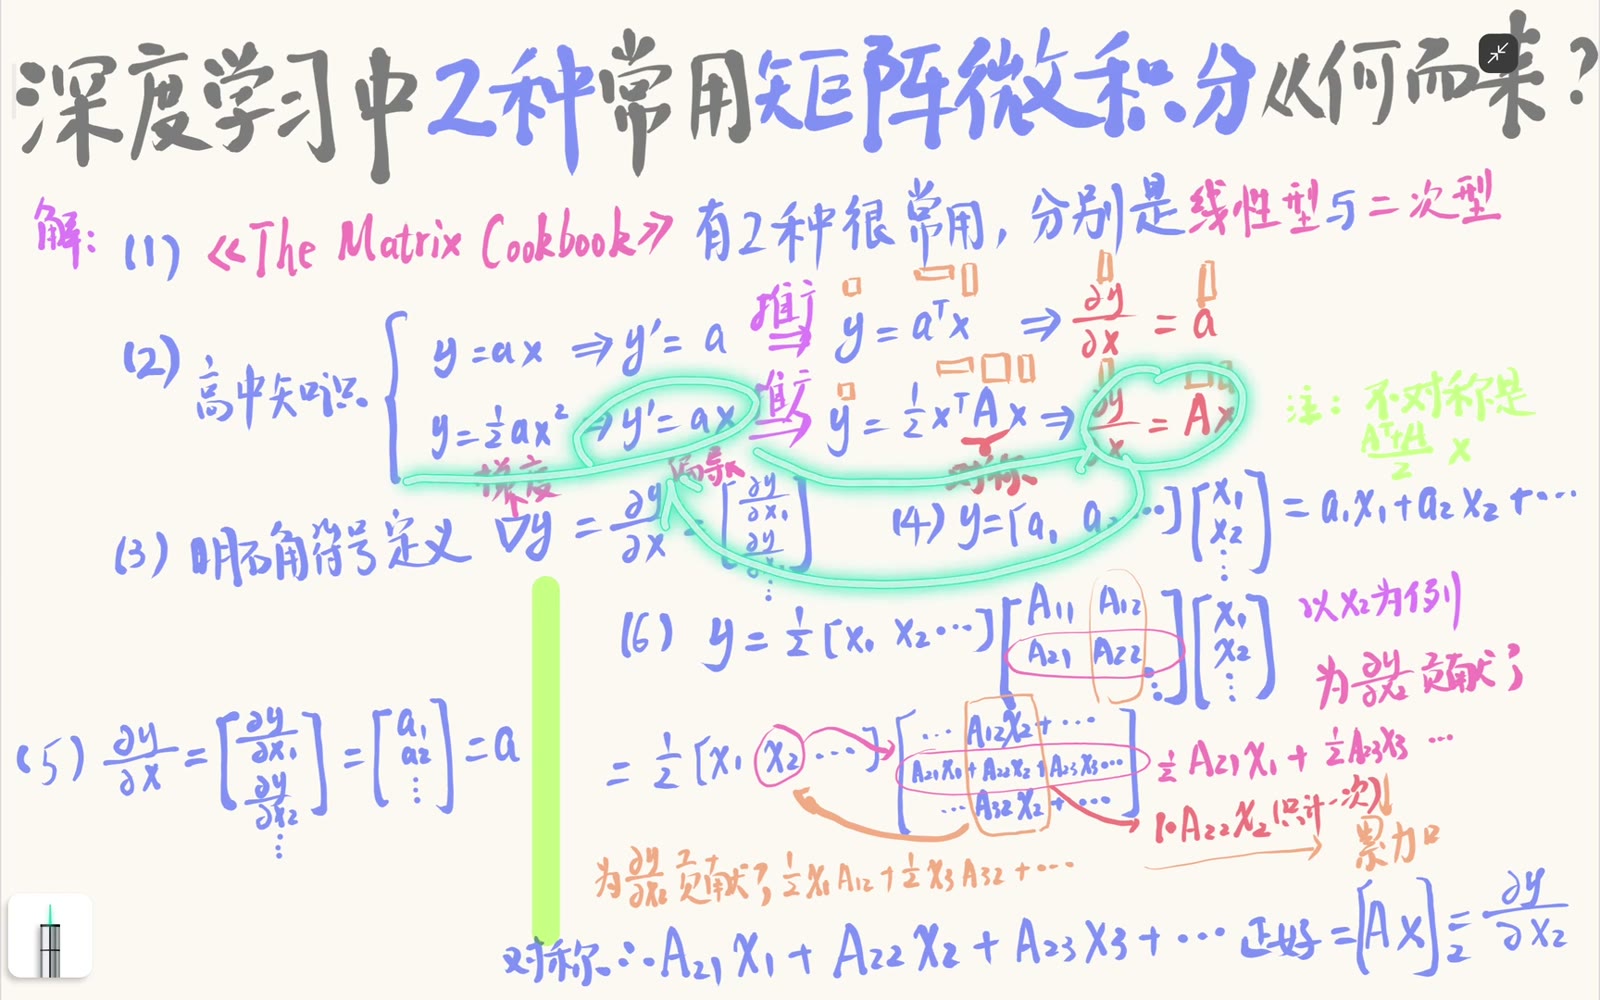 深度学习中2种常用矩阵微积分从何而来?
解: (1) 《The Matrix Cookbook》 有2种很常用, 分别是线性型与二次型
(2) 高中知识
y = ax ⇒ y' = a 推广 ⇒ y = aᵀx ⇒ ∂y/∂x = a
y = ½ax² ⇒ y' = ax 推广 ⇒ y = ½xᵀAx ⇒ ∂y/∂x = Ax
对称
注: 不对称是 (Aᵀ+A)/2 x
梯度 偏导
(3) 明确符号定义 ∇y = ∂y/∂x = [∂y/∂x₁ ∂y/∂x ⋮]
(4) y = [a₁ a₂ ⋯][x₁ x₂ ⋮] = a₁x₁ + a₂x₂ + ⋯
(5) ∂y/∂x = [∂y/∂x₁ ∂y/∂x₂ ⋮] = [a₁ a₂ ⋮] = a
(6) y = ½[x₁ x₂ ⋯][A₁₁ A₁₂ A₂₁ A₂₂ ⋱][x₁ x₂ ⋮]
以x₂为例
为∂y/∂x₂贡献了
= ½[x₁ x₂ ⋯][⋯ A₁₂x₂ + ⋯
A₂₁x₁ + A₂₂x₂ + A₂₃x₃ ⋯
⋯ A₃₂x₂ + ⋯]
½A₂₁x₁ + ½A₂₃x₃ ⋯
A₂₂x₂(只计一次)
累加
为∂y/∂x₂贡献了½x₁A₁₂ + ½x₃A₃₂ + ⋯
对称∴A₂₁x₁ + A₂₂x₂ + A₂₃x₃ + ⋯ 正好 = [Ax]₂ = ∂y/∂x₂